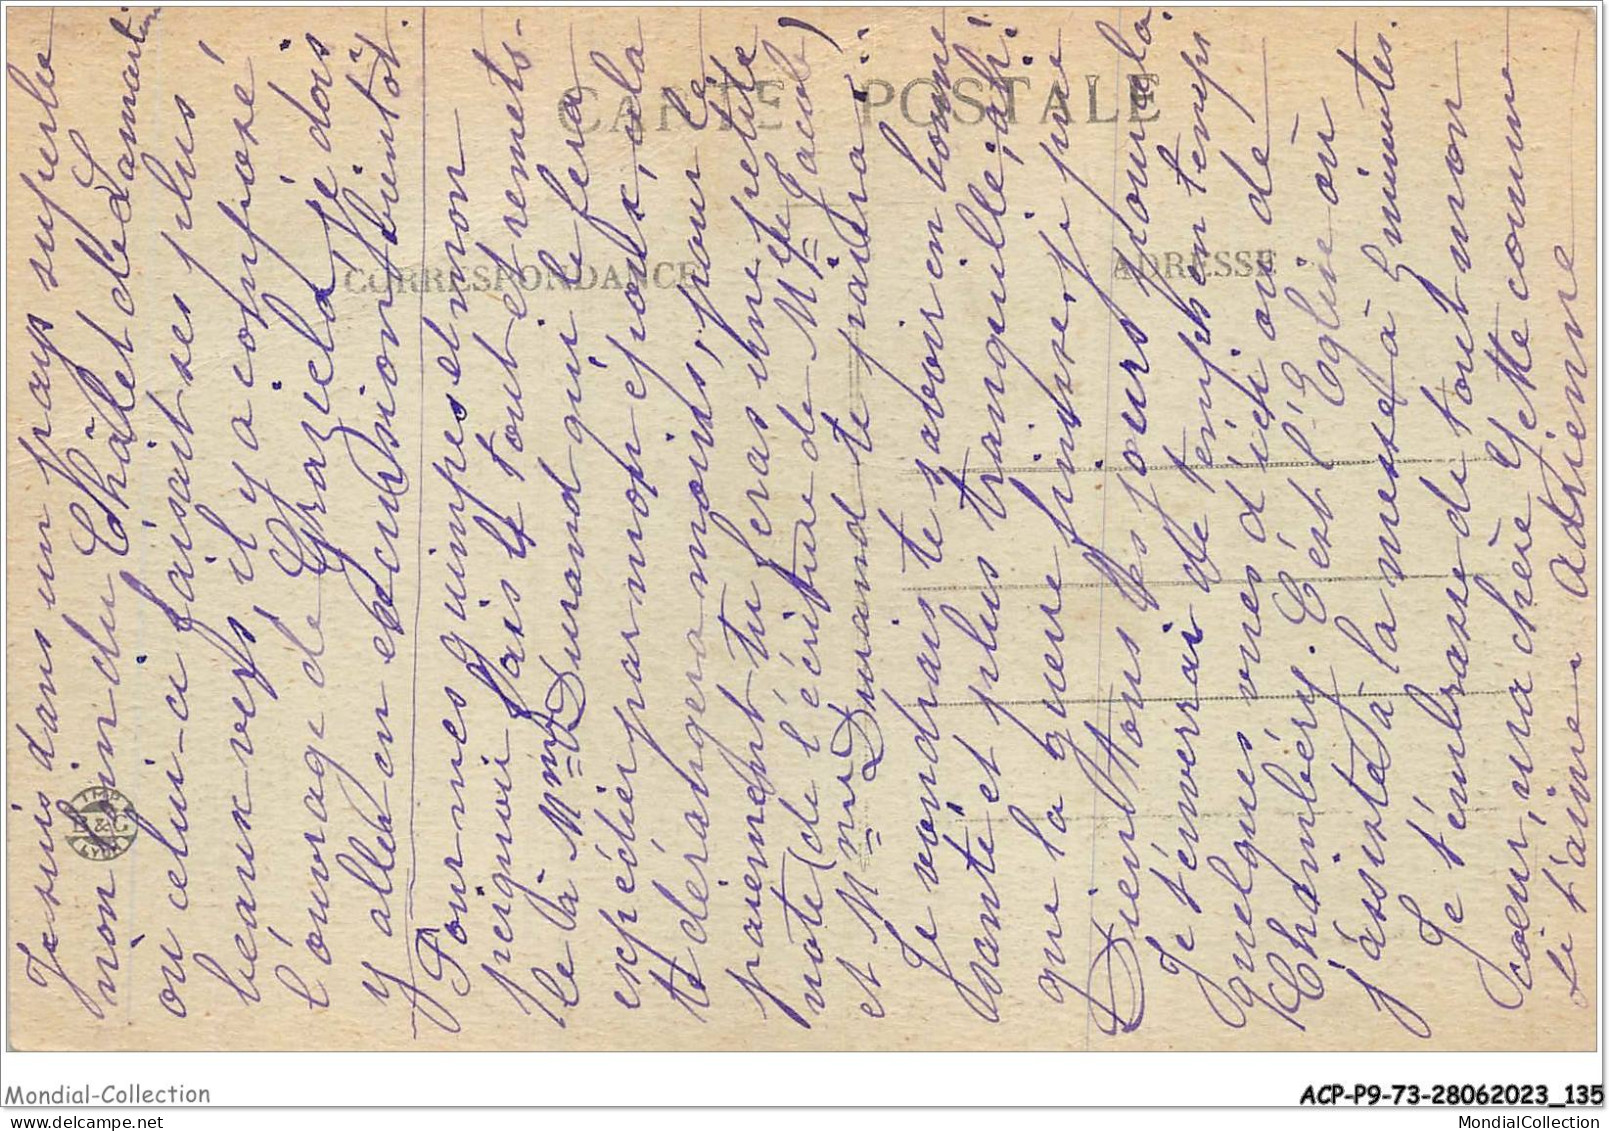 Je suis dans un pays superbe
non loin du Châlet de Lamartine
où celui-ci faisait ses plus
beaux vers, il y a composé
l'ouvrage de Graziella, je dois
y aller en excursion bientôt.
Pour mes guimpes et mon
peignoir fais le tout et remets-
le à Mme Durand qui le fera
expédier par mon époux, cela
te dérangera moins, pour le
paiement tu feras une petite
note (de l'écriture de Mlle Jacob)
et Mme Durand te paiera.
Je voudrais te savoir en bonne
santé et plus tranquille, ah!
que la guerre finisse, je prie
Dieu tous les jours pour cela.
Je t'enverrai de temps en temps
quelques vues d'ici ou de
Chambéry. C'est l'Eglise où
j'assiste à la messe à 5 minutes.
Je t'embrasse de tout mon
cœur, ma chère Yette comme
je t'aime. Adrienne
CARTE POSTALE
CORRESPONDANCE
ADRESSE
IMP.
B & G
LYON
Mondial-Collection
ACP-P9-73-28062023_135
delcampe.net
MondialCollection